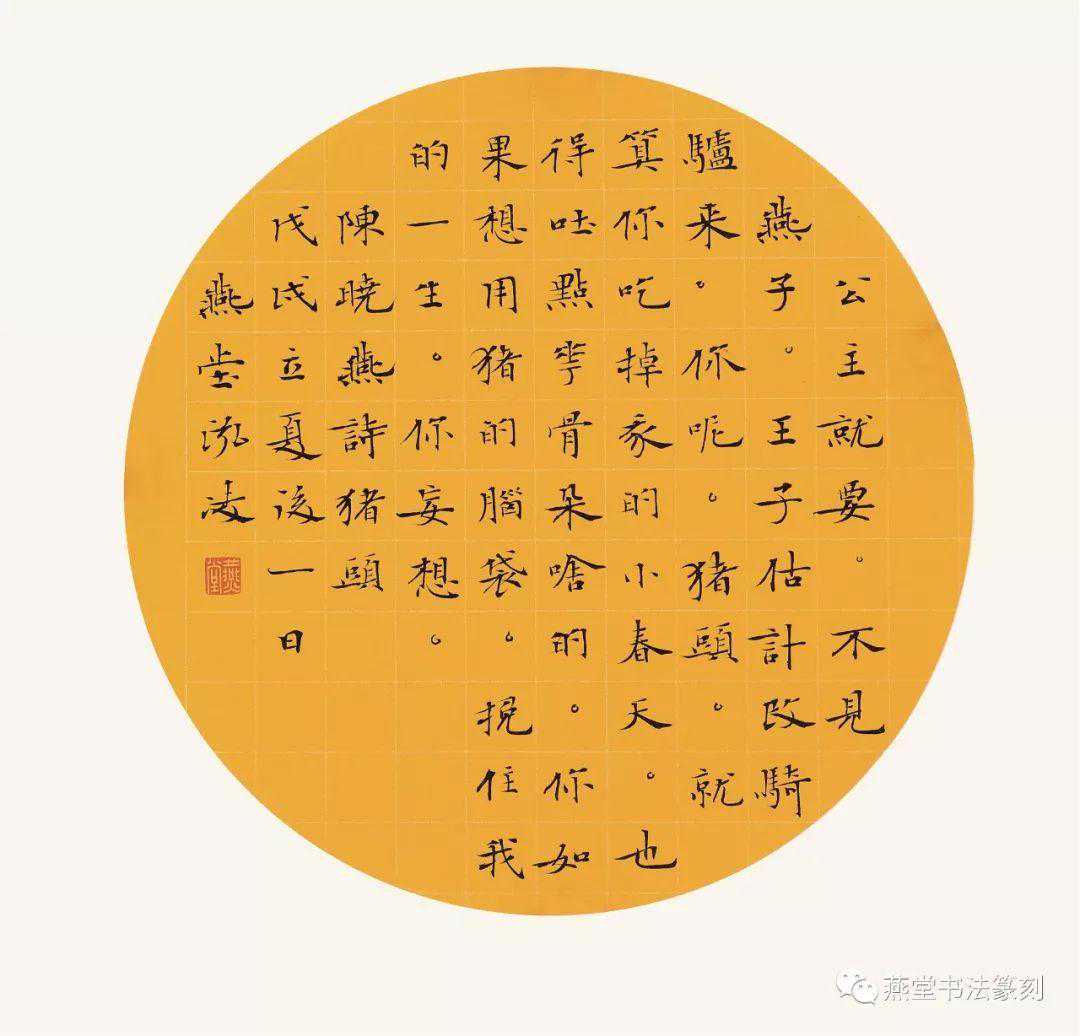 公主就要。不見
燕子。王子估計改騎
驢来。你呢。猪頭。就
算你吃掉的小春天。也
得吐點花骨朵啥的。你如
果想用猪的腦袋。挽住我
的一生。你妄想。
陳曉燕詩猪頭
戊戌立夏後一日
燕堂泓
燕堂
燕堂书法篆刻